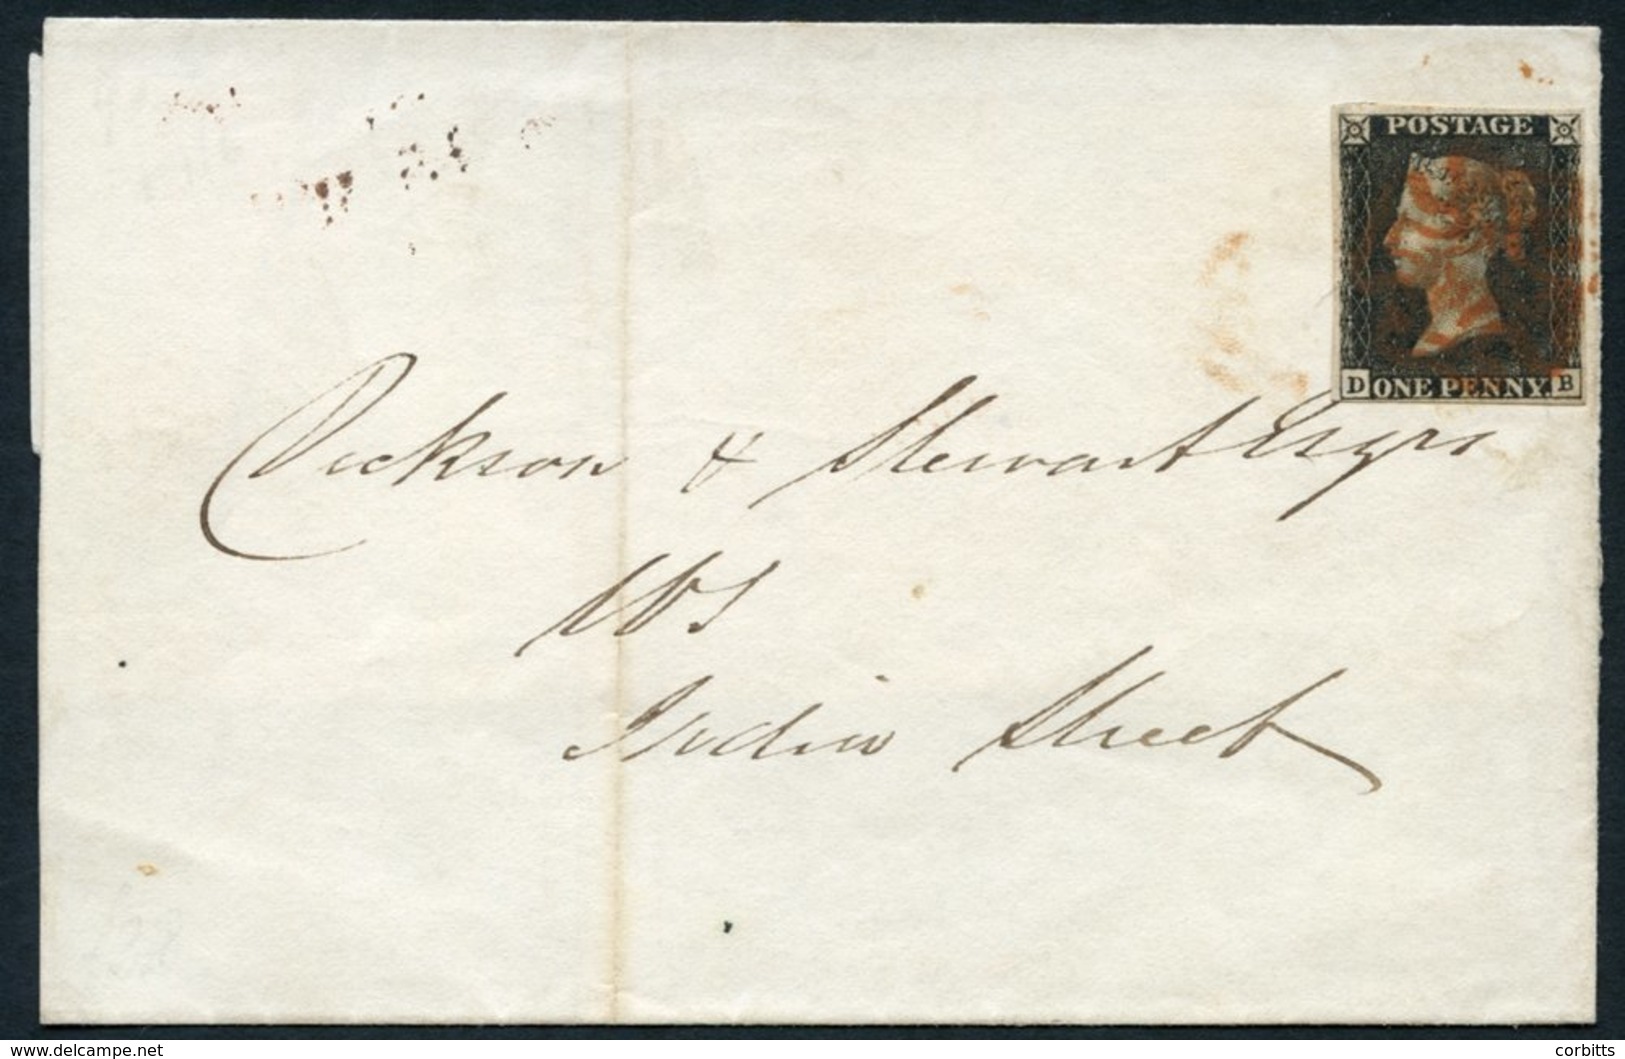 POSTAGE
D ONE PENNY. B
Dickson & Stewart Esqrs
WS
India Street
www.delcampe.net
corbitts